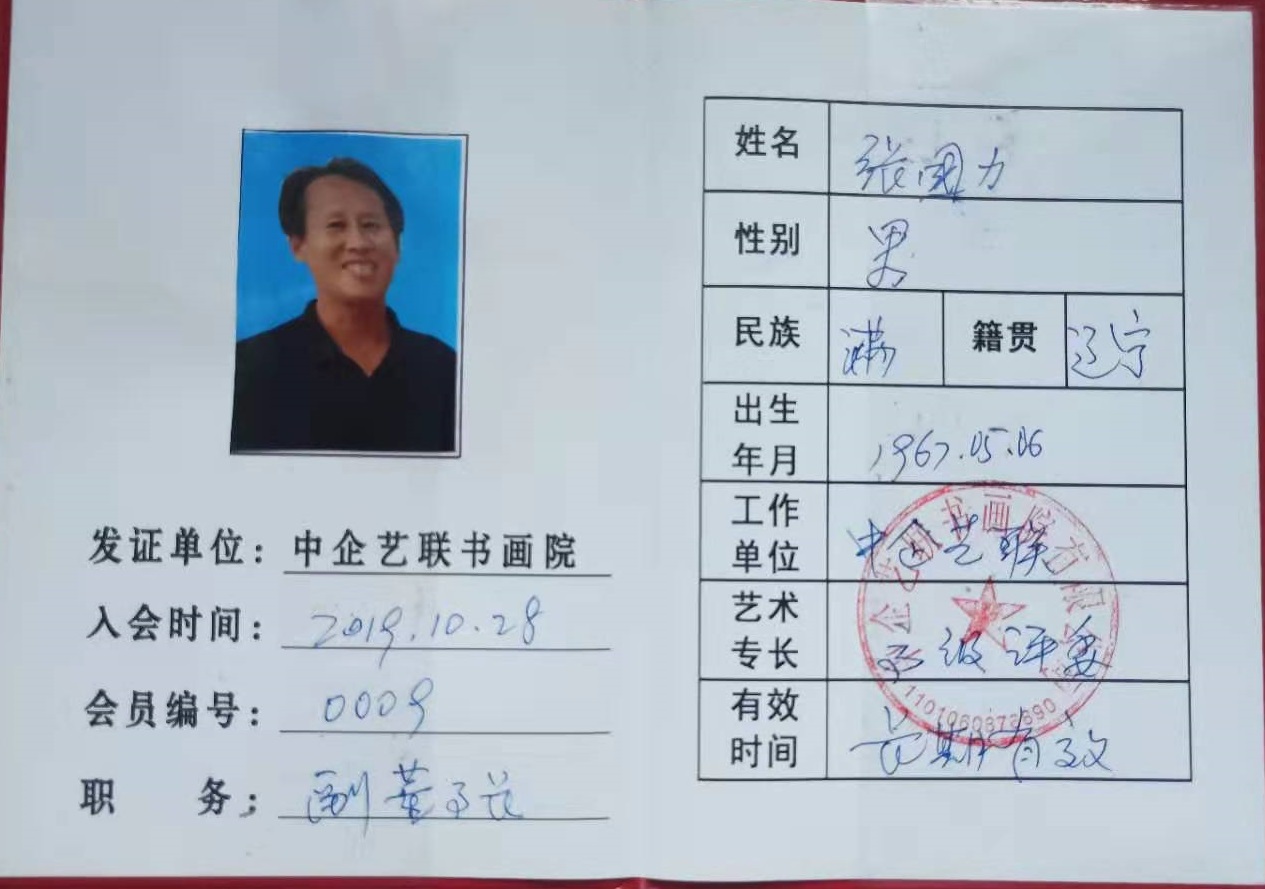 发证单位：中企艺联书画院
入会时间：2019.10.28
会员编号：0009
职 务：副董事长
姓名 张国力
性别 男
民族 满 籍贯 辽宁
出生年月 1967.05.06
工作单位 中国艺联
艺术专长 评委
有效时间 长期有效
中企艺联书画院有限公司